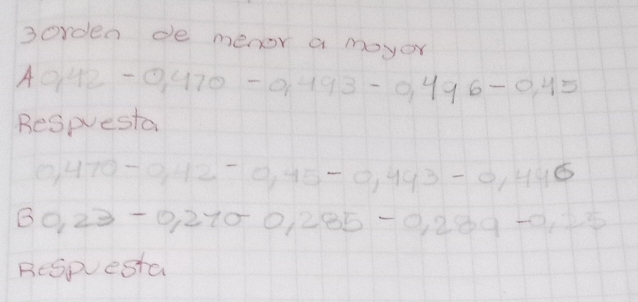 3 orden de menor a moyor
A 0,42 - 0,470 - 0,493 - 0,496 - 0,45
Respuesta
0,470 - 0,42 - 0,45 - 0,493 - 0,496
B 0,23 - 0,270 - 0,285 - 0,289 - 0,25
Respuesta